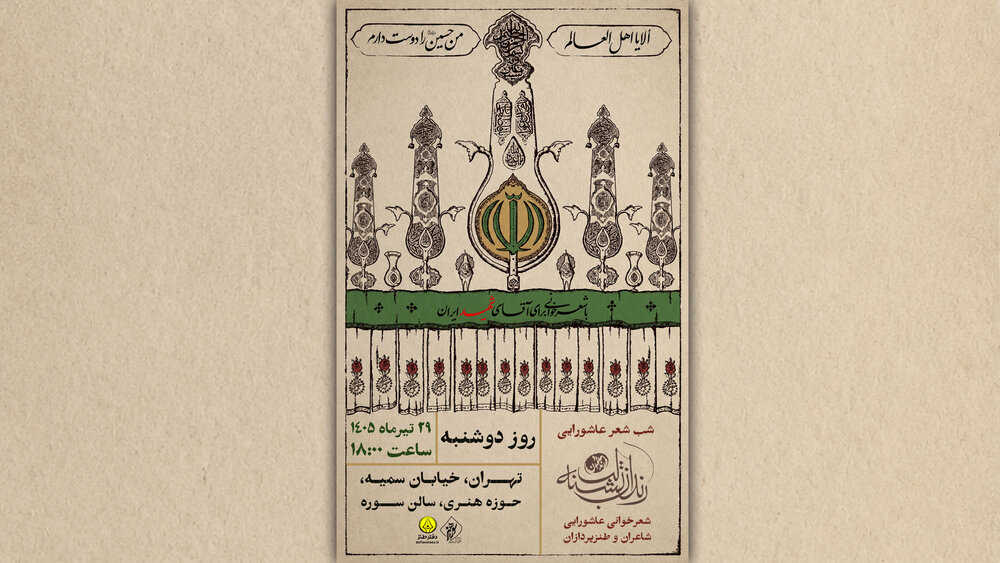 ألا یا اهل العالم
من حسین را دوست دارم
با شعرخوانی برای آقای شهید ایران
شب شعر عاشورایی
رندان تشنه لب
شعرخوانی عاشورایی
شاعران و طنزپردازان
روز دوشنبه
۲۹ تیرماه ۱۴۰۵
ساعت ۱۸:۰۰
تهران، خیابان سمیه،
حوزه هنری، سالن سوره
دفتر طنز